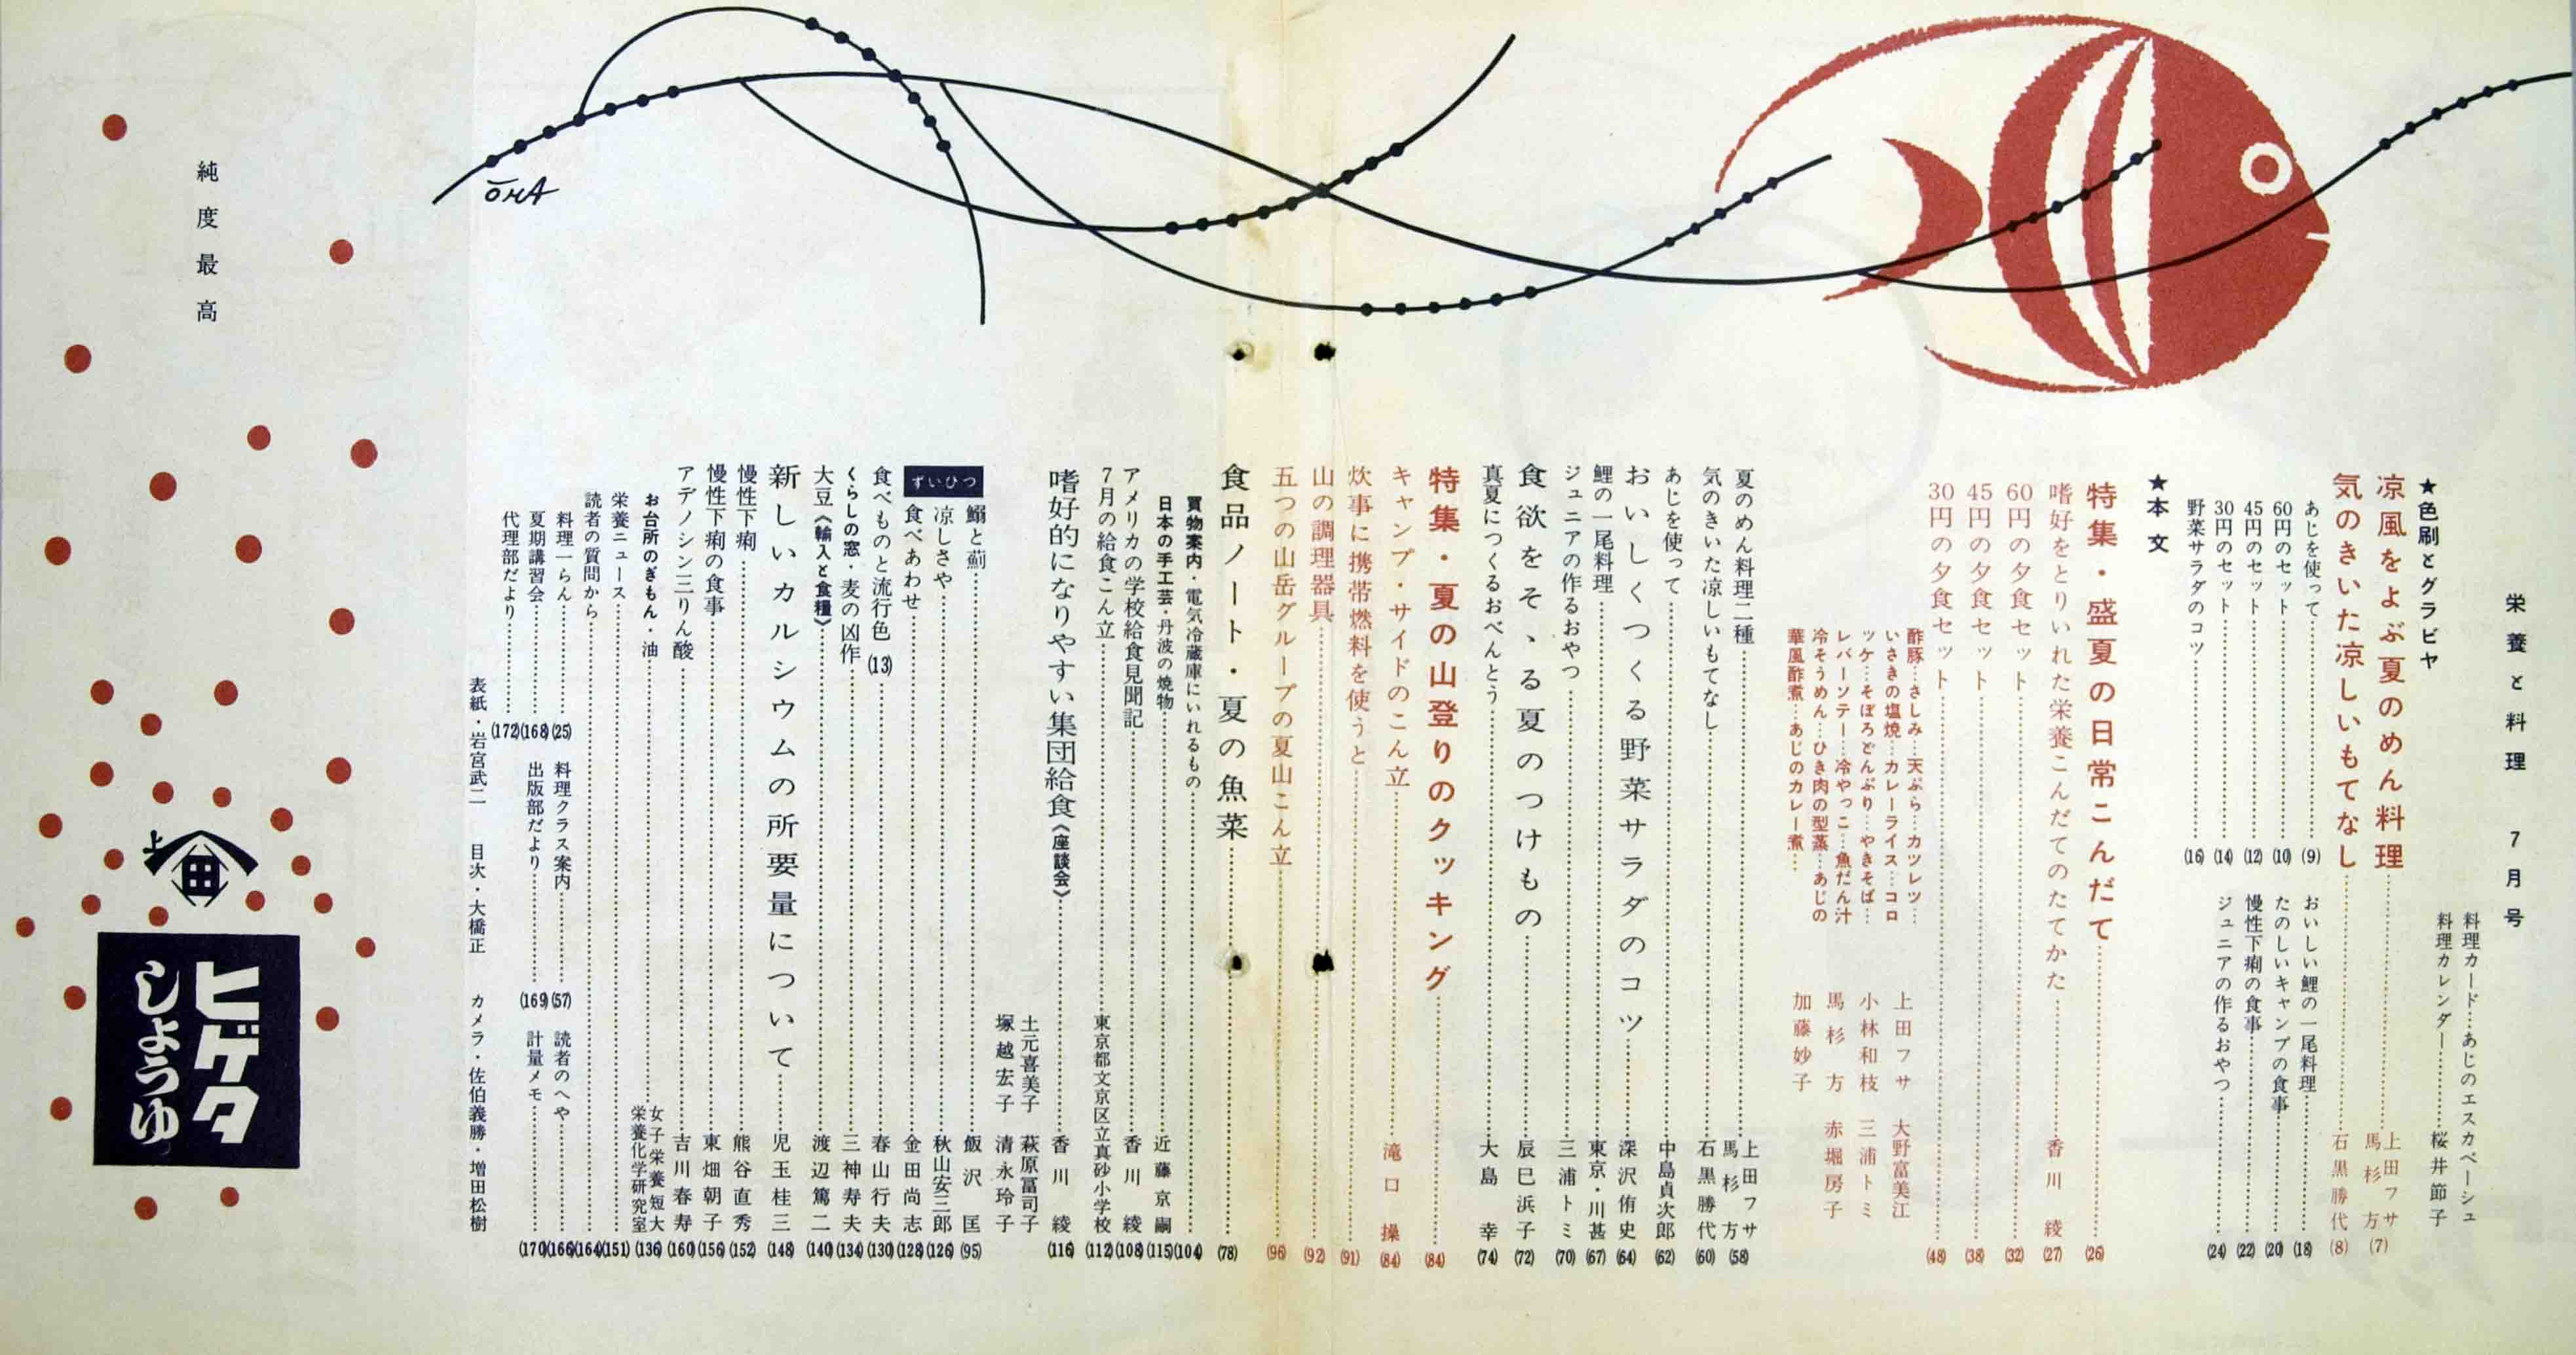 栄養と料理 7月号
料理カード…あじのエスカベーシュ
料理カレンダー…………桜井節子
★色刷とグラビヤ
凉風をよぶ夏のめん料理…………上田フサ 馬杉方 (7)
気のきいた凉しいもてなし…………石黒勝代 (8)
あじを使って…………(9)
60円のセット…………(10)
45円のセット…………(12)
30円のセット…………(14)
野菜サラダのコツ…………(16)
おいしい鯉の一尾料理…………(18)
たのしいキャンプの食事…………(20)
慢性下痢の食事…………(22)
ジュニアの作るおやつ…………(24)
★本文
特集・盛夏の日常こんだて…………(26)
嗜好をとりいれた栄養こんだてのたてかた…………香川 綾 (27)
60円の夕食セット…………(32)
45円の夕食セット…………(38)
30円の夕食セット…………(48)
酢豚…さしみ…天ぷら…カツレツ…
いさきの塩焼…カレーライス…コロ
ッケ…そぼろどんぶり…やきそば…
レバーソテー…冷やっこ…魚だん汁
冷そうめん…ひき肉の型蒸…あじの
華風酢煮…あじのカレー煮…
上田フサ 大野富美江
小林和枝 三浦トミ
馬杉 方 赤堀房子
加藤妙子
夏のめん料理二種…………上田フサ 馬杉方 (58)
気のきいた凉しいもてなし…………石黒勝代 (60)
あじを使って…………中島貞次郎 (62)
おいしくつくる野菜サラダのコツ…………深沢侑史 (64)
鯉の一尾料理…………東京・川甚 (67)
ジュニアの作るおやつ…………三浦トミ (70)
食欲をそゝる夏のつけもの…………辰巳浜子 (72)
真夏につくるおべんとう…………大島 幸 (74)
特集・夏の山登りのクッキング…………(84)
キャンプ・サイドのこん立…………滝口 操 (84)
炊事に携帯燃料を使うと…………(91)
山の調理器具…………(92)
五つの山岳グループの夏山こん立…………(96)
食品ノート・夏の魚菜…………(78)
買物案内・電気冷蔵庫にいれるもの…………(104)
日本の手工芸・丹波の焼物…………近藤京嗣 (115)
アメリカの学校給食見聞記…………香川 綾 (108)
7月の給食こん立…………東京都文京区立真砂小学校 (112)
嗜好的になりやすい集団給食《座談会》…………香川 綾 (116)
土元喜美子 萩原冨司子
塚越宏子 清永玲子
ずいひつ
鰯と薊…………飯沢 匡 (95)
凉しさや…………秋山安三郎 (126)
食べあわせ…………金田尚志 (128)
食べものと流行色 (13)…………春山行夫 (130)
くらしの窓・麦の凶作…………三神寿夫 (134)
大豆《輸入と食糧》…………渡辺篤二 (140)
新しいカルシウムの所要量について…………児玉桂三 (148)
慢性下痢…………熊谷直秀 (152)
慢性下痢の食事…………東畑朝子 (156)
アデノシン三りん酸…………吉川春寿 (160)
お台所のぎもん・油…………女子栄養短大 栄養化学研究室 (136)
栄養ニュース…………(151)
読者の質問から…………(164)
料理一らん…………(25) 料理クラス案内…………(57) 読者のへや…………(166)
夏期講習会…………(168) 出版部だより…………(169) 計量メモ…………(170)
代理部だより…………(172)
表紙・岩宮武二 目次・大橋正 カメラ・佐伯義勝・増田松樹
ŌHA
純度最高
上
田
ヒゲタ
しょうゆ